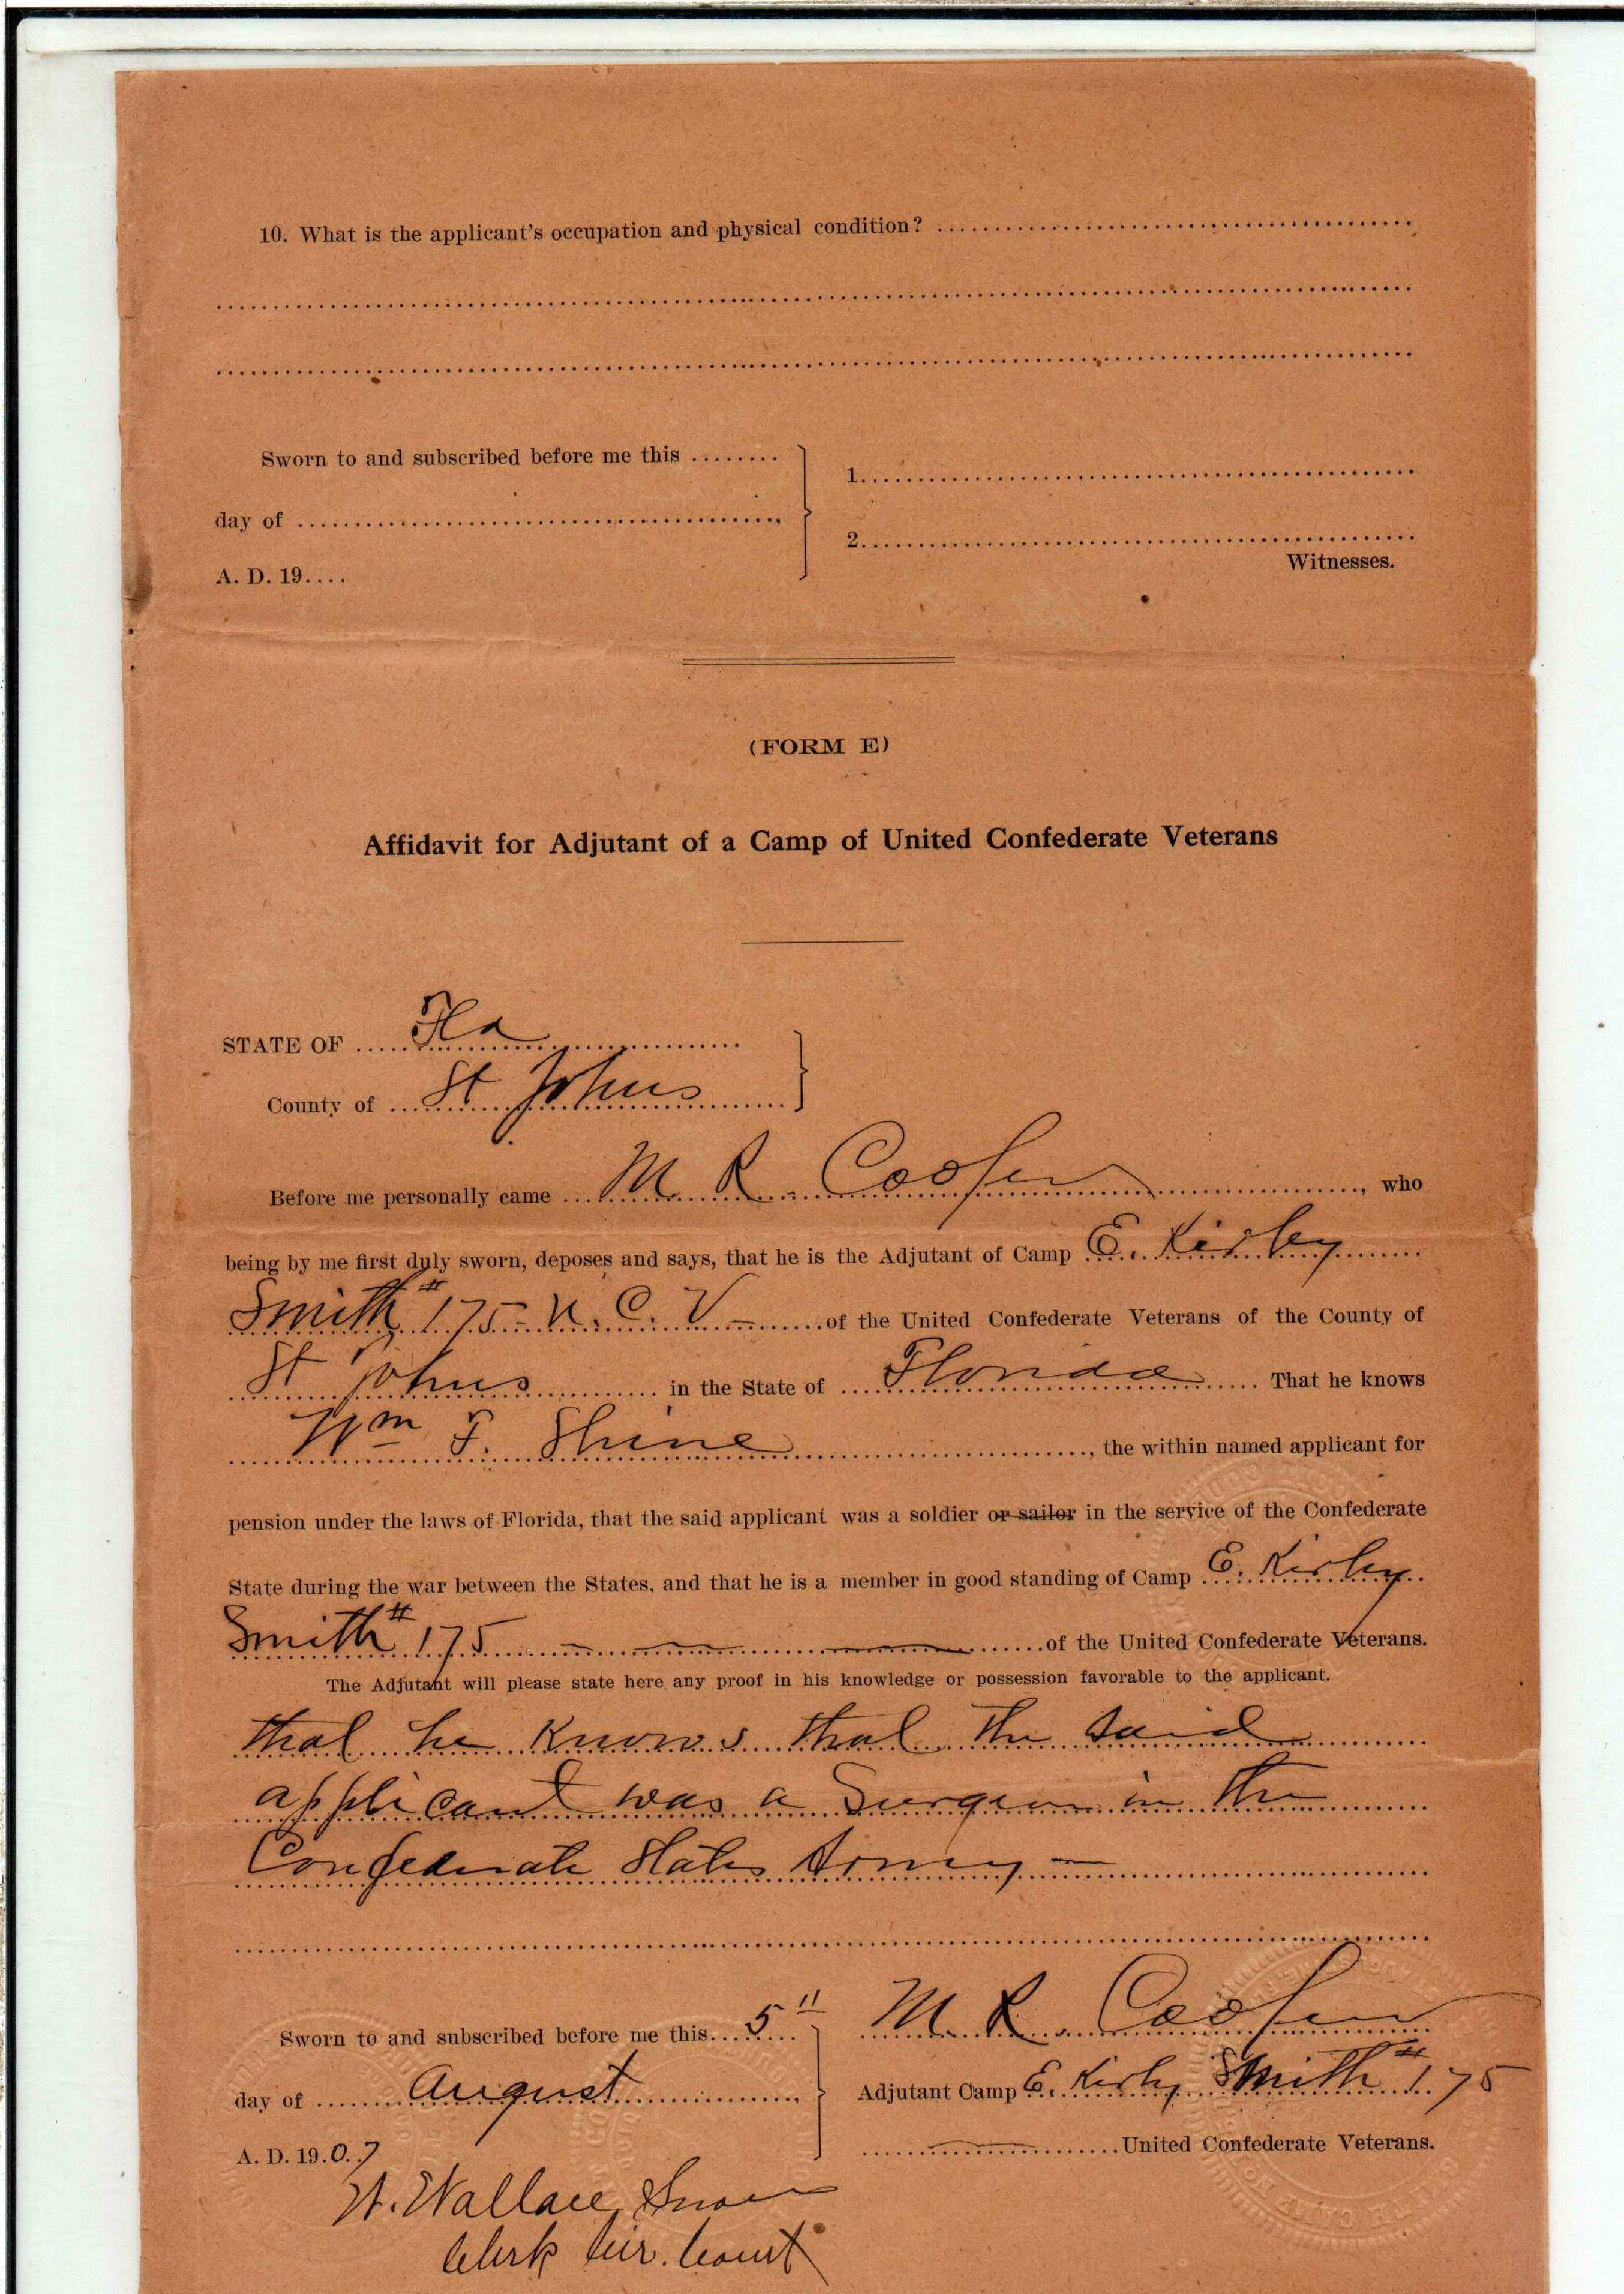 10. What is the applicant's occupation and physical condition? ........................................
........................................
........................................
Sworn to and subscribed before me this ........
day of ........................................
A. D. 19....
1........................................
2........................................
Witnesses.
(FORM E)
Affidavit for Adjutant of a Camp of United Confederate Veterans
STATE OF .....Fla.....
County of ...St Johns.....
Before me personally came ...M. R. Cooper....., who
being by me first duly sworn, deposes and says, that he is the Adjutant of Camp E. Kirby
Smith # 175 - U. C. V. - of the United Confederate Veterans of the County of
St Johns in the State of Florida That he knows
Wm F. Shine, the within named applicant for
pension under the laws of Florida, that the said applicant was a soldier or sailor in the service of the Confederate
State during the war between the States, and that he is a member in good standing of Camp E. Kirby
Smith # 175 of the United Confederate Veterans.
The Adjutant will please state here any proof in his knowledge or possession favorable to the applicant.
that he knows that the said
applicant was a Surgeon in the
Confederate States Army -
........................................
Sworn to and subscribed before me this 5"
day of August
A. D. 1907
M. R. Cooper
Adjutant Camp E. Kirby Smith # 175
United Confederate Veterans.
W. Wallace Snow
Clerk Cir. Court